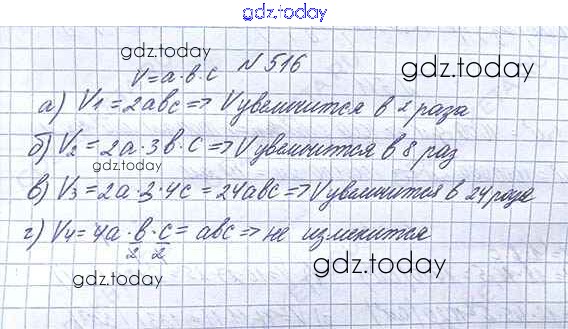 gdz.today
gdz.today
N 516
V=a·b·c
gdz.today
а) V1 = 2abc => V увеличится в 2 раза
б) V2 = 2a·3b·c => V увеличится в 8 раз
gdz.today
в) V3 = 2a·3·4c = 24abc => V увеличится в 24 раза
г) V4 = 4a·b/2·c/2 = abc => не изменится
gdz.today
gdz.today